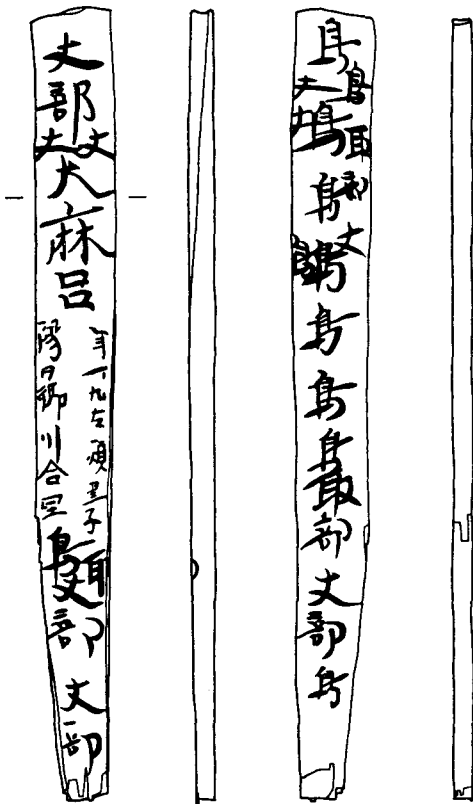 丈部大麻呂
年九左頬黒子
陽日郷川合里
鳥取
丈部 丈部
鳥取部丈
鳥鳥鳥鳥鳥鳥鳥取部丈部鳥